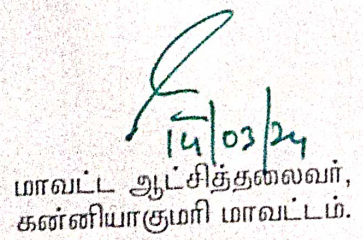 14/03/24
மாவட்ட ஆட்சித்தலைவர்,
கன்னியாகுமரி மாவட்டம்.